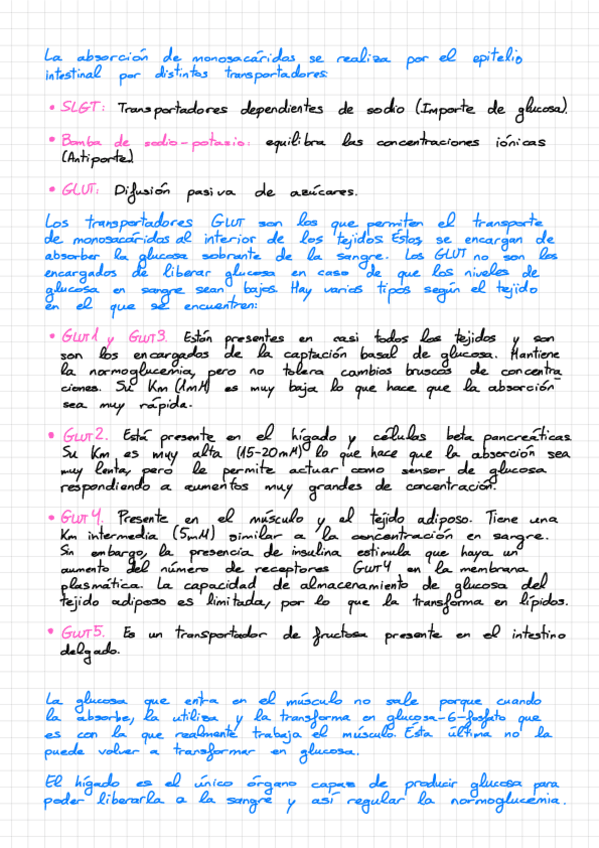 La absorción de monosacáridos se realiza por el epitelio
intestinal por distintos transportadores:
• SLGT: Transportadores dependientes de sodio (Importe de glucosa).
• Bomba de sodio-potasio: equilibra las concentraciones iónicas
(Antiporte).
• GLUT: Difusión pasiva de azúcares.
Los transportadores GLUT son los que permiten el transporte
de monosacáridos al interior de los tejidos. Éstos, se encargan de
absorber la glucosa sobrante de la sangre. Los GLUT no son los
encargados de liberar glucosa en caso de que los niveles de
glucosa en sangre sean bajos. Hay varios tipos según el tejido
en el que se encuentren:
• GLUT1 y GLUT3. Están presentes en casi todos los tejidos y son
son los encargados de la captación basal de glucosa. Mantiene
la normoglucemia, pero no tolera cambios bruscos de concentra
ciones. Su Km (1mM) es muy baja lo que hace que la absorción
sea muy rápida.
• GLUT2. Está presente en el hígado y células beta pancreáticas.
Su Km es muy alta (15-20mM) lo que hace que la absorción sea
muy lenta, pero le permite actuar como sensor de glucosa
respondiendo a aumentos muy grandes de concentración.
• GLUT4. Presente en el músculo y el tejido adiposo. Tiene una
Km intermedia (5mM) similar a la concentración en sangre.
Sin embargo, la presencia de insulina estimula que haya un
aumento del número de receptores GLUT4 en la membrana
plasmática. La capacidad de almacenamiento de glucosa del
tejido adiposo es limitada, por lo que la transforma en lípidos.
• GLUT5. Es un transportador de fructosa presente en el intestino
delgado.
La glucosa que entra en el músculo no sale porque cuando
la absorbe, la utiliza y la transforma en glucosa-6-fosfato que
es con la que realmente trabaja el músculo. Ésta última no la
puede volver a transformar en glucosa.
El hígado es el único órgano capaz de producir glucosa para
poder liberarla a la sangre y así regular la normoglucemia.